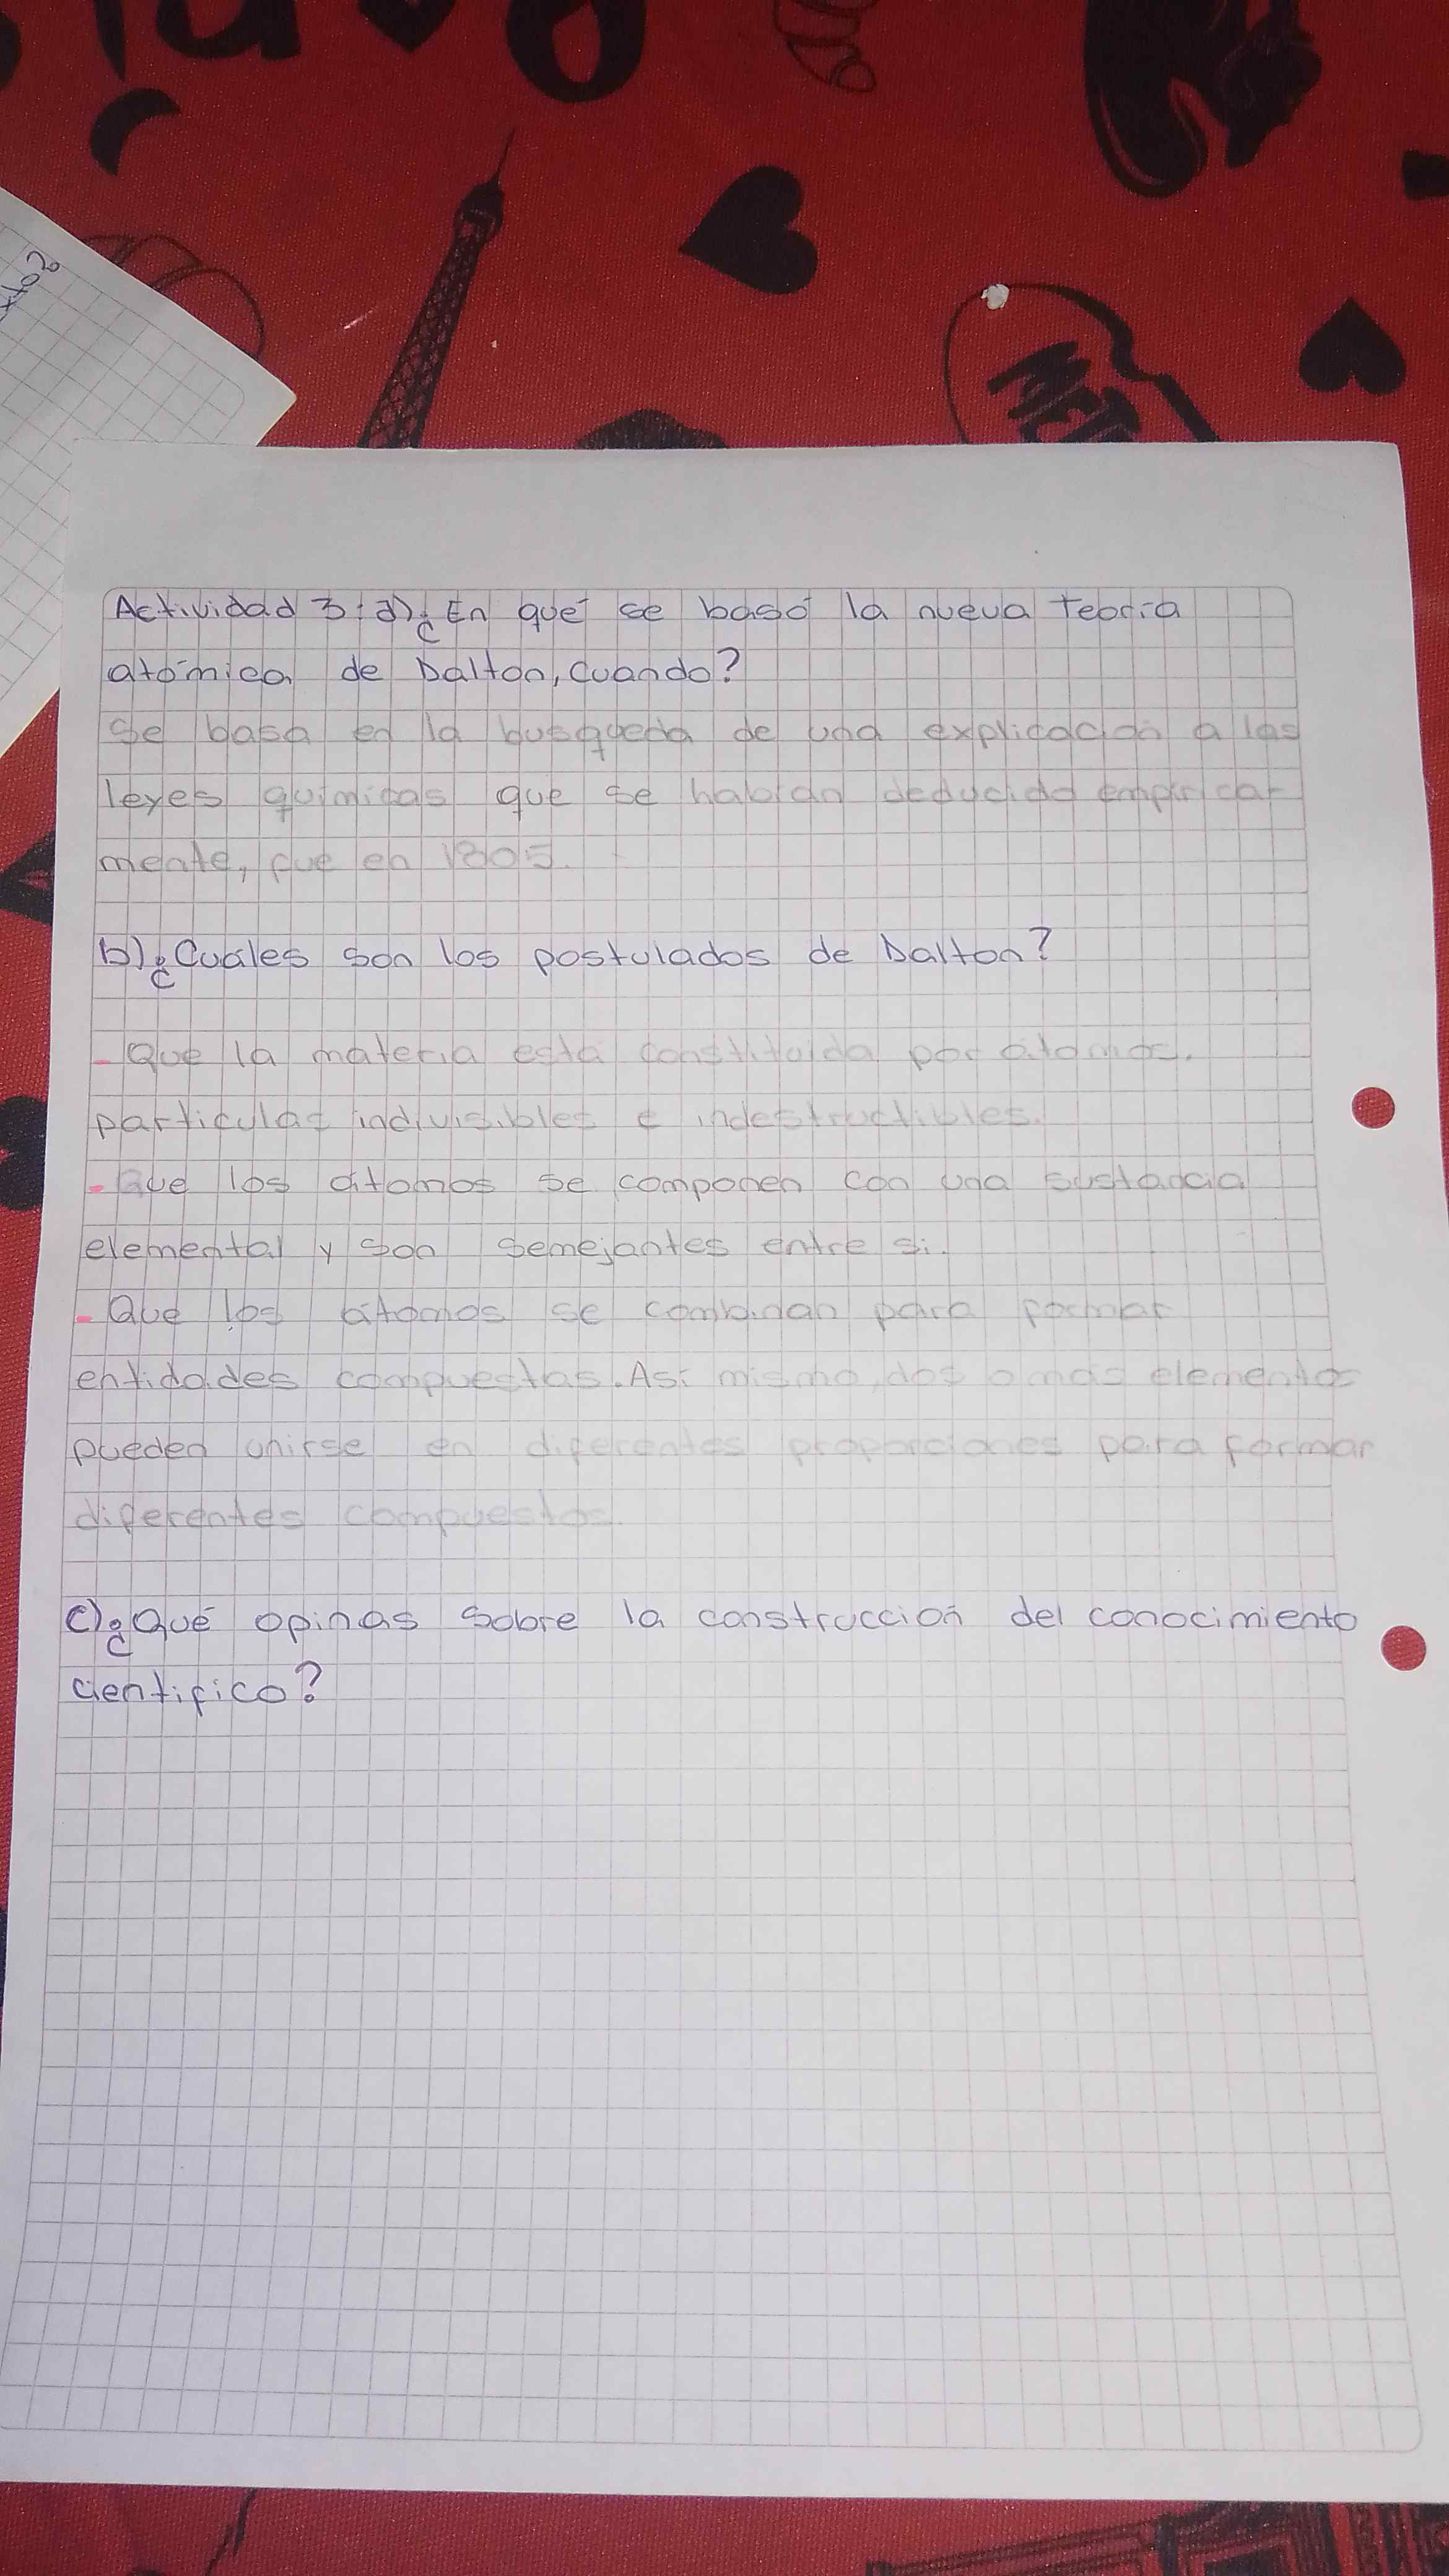 Actividad 3: a) ¿En qué se basó la nueva teoría
atómica de Dalton, cuando?
Se basa en la busqueda de una explicación a las
leyes químicas que se habían deducido empirica-
mente, fue en 1805.
b) ¿Cuáles son los postulados de Dalton?
- Que la materia está constituida por átomos.
particulas indivisibles e indestructibles.
- Que los átomos se componen con una sustancia
elemental y son semejantes entre si.
- Que los átomos se combinan para formar
entidades compuestas. Asi mismo, dos o más elementos
pueden unirse en diferentes proporciones para formar
diferentes compuestos.
c) ¿Qué opinas sobre la construcción del conocimiento
cientifico?